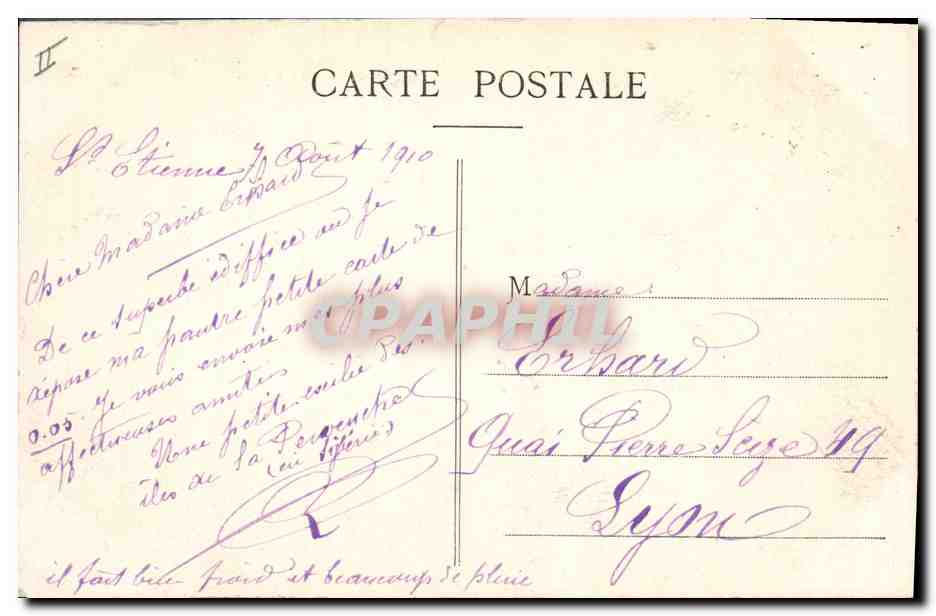 II
CARTE POSTALE
St Etienne 7 Août 1910
Chère Madame Erhard
De ce superbe édiffice ou je
répose ma pauvre petite carte de
0.05. Je vous envoie mes plus
affectueuses amitiés
Une petite exilée des
îles de la Pervenche
(en Sibérie)
il fait bien froid et beaucoups de pluie
Madame
Erhard
Quai Pierre Scize 49
Lyon
CPAPHIL